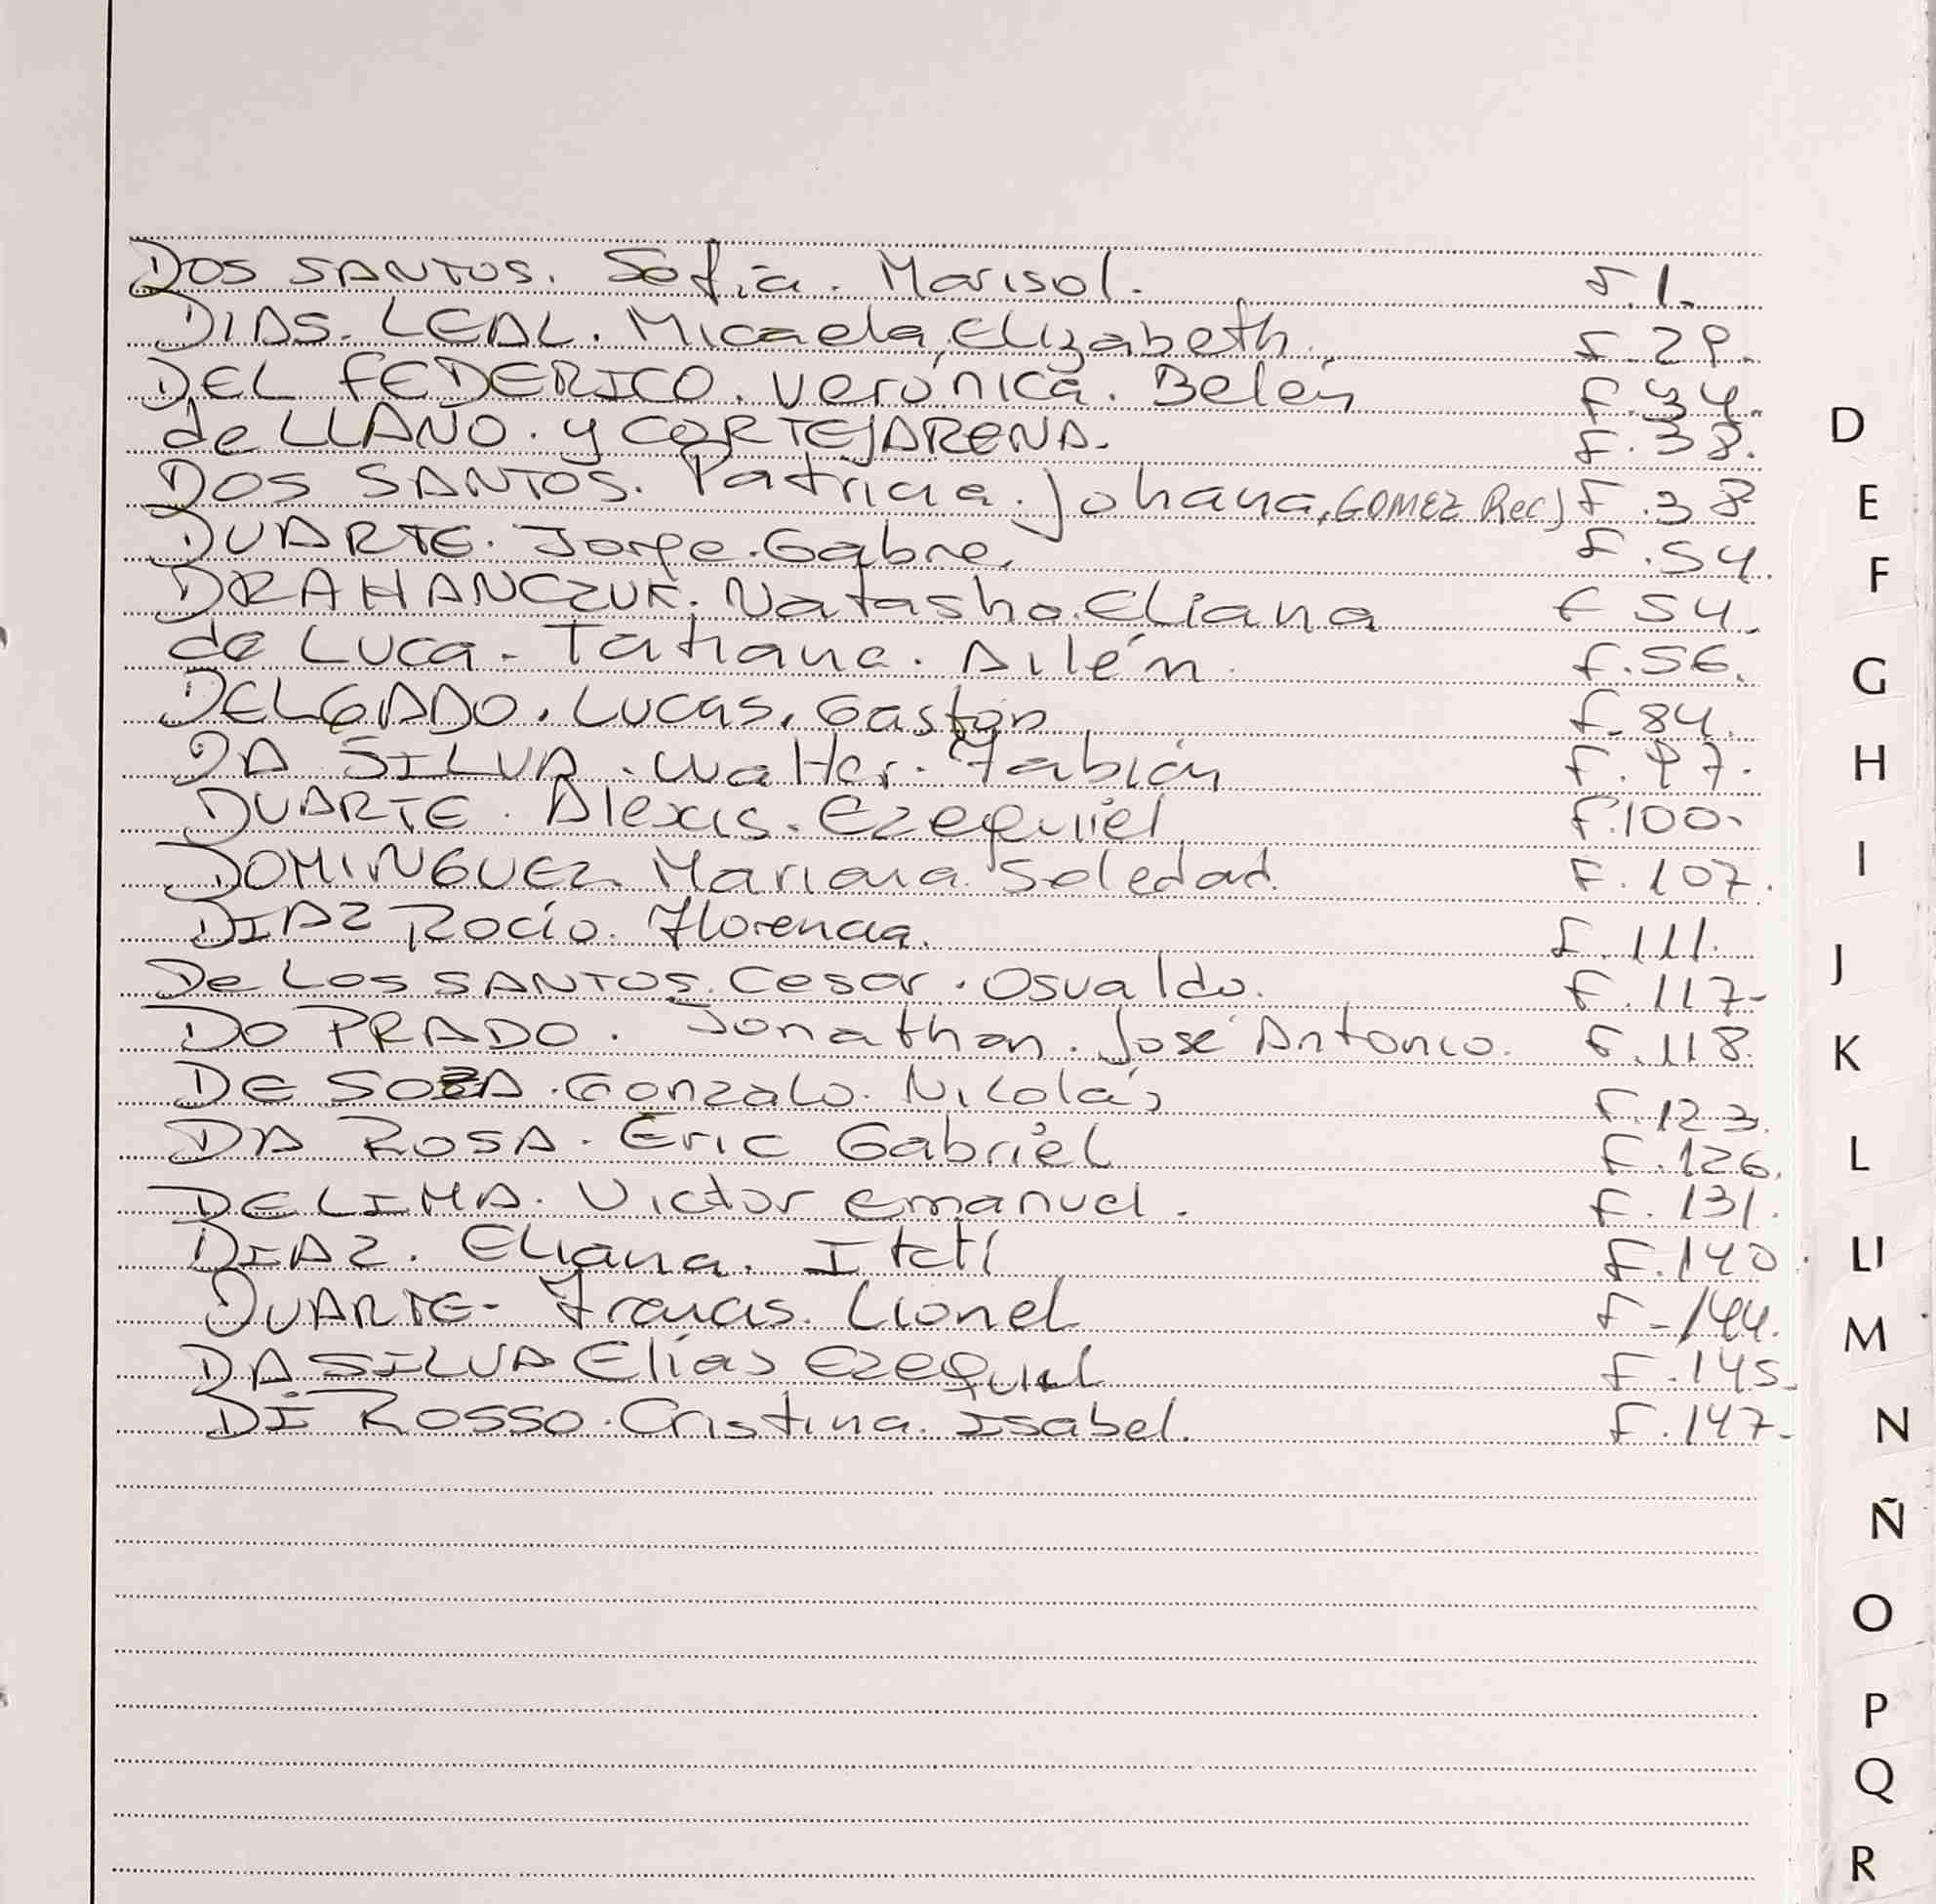 DOS SANTOS. Sofia. Marisol. F.1.
DIAS. LEAL. Micaela, Elizabeth. F.29.
DEL FEDERICO. Verónica. Belén F.34.
de LLANO. y CORTEJARENA. F.38.
DOS SANTOS. Patricia. Johana, GOMEZ Rec) F.38
DUARTE. Jorge. Gabre. F.54.
DRAHANCZUK. Natasha. Eliana F 54.
de Luca. Tatiana. Ailén. F.56.
DELGADO. Lucas. Gastón F.84.
DA SILVA. Walter. Fabián F.97.
DUARTE. Alexis. Ezequiel F.100.
DOMINGUEZ Mariana Soledad. F.107.
DIAZ Rocío. Florencia. F.111.
De Los SANTOS. Cesar. Osvaldo. F.117-
DO PRADO. Jonathan. José Antonio. F.118.
DE SOZA. Gonzalo. Nicolás F.123.
DA ROSA. Eric Gabriel F.126.
DE LIMA. Victor Emanuel. F.131.
DIAZ. Eliana. Itatí F.140.
DUARTE- Francis. Lionel F-144.
DA SILVA Elías Ezequiel F.145.
DI ROSSO. Cristina. Isabel. F.147-
D
E
F
G
H
I
J
K
L
Ll
M
N
Ñ
O
P
Q
R